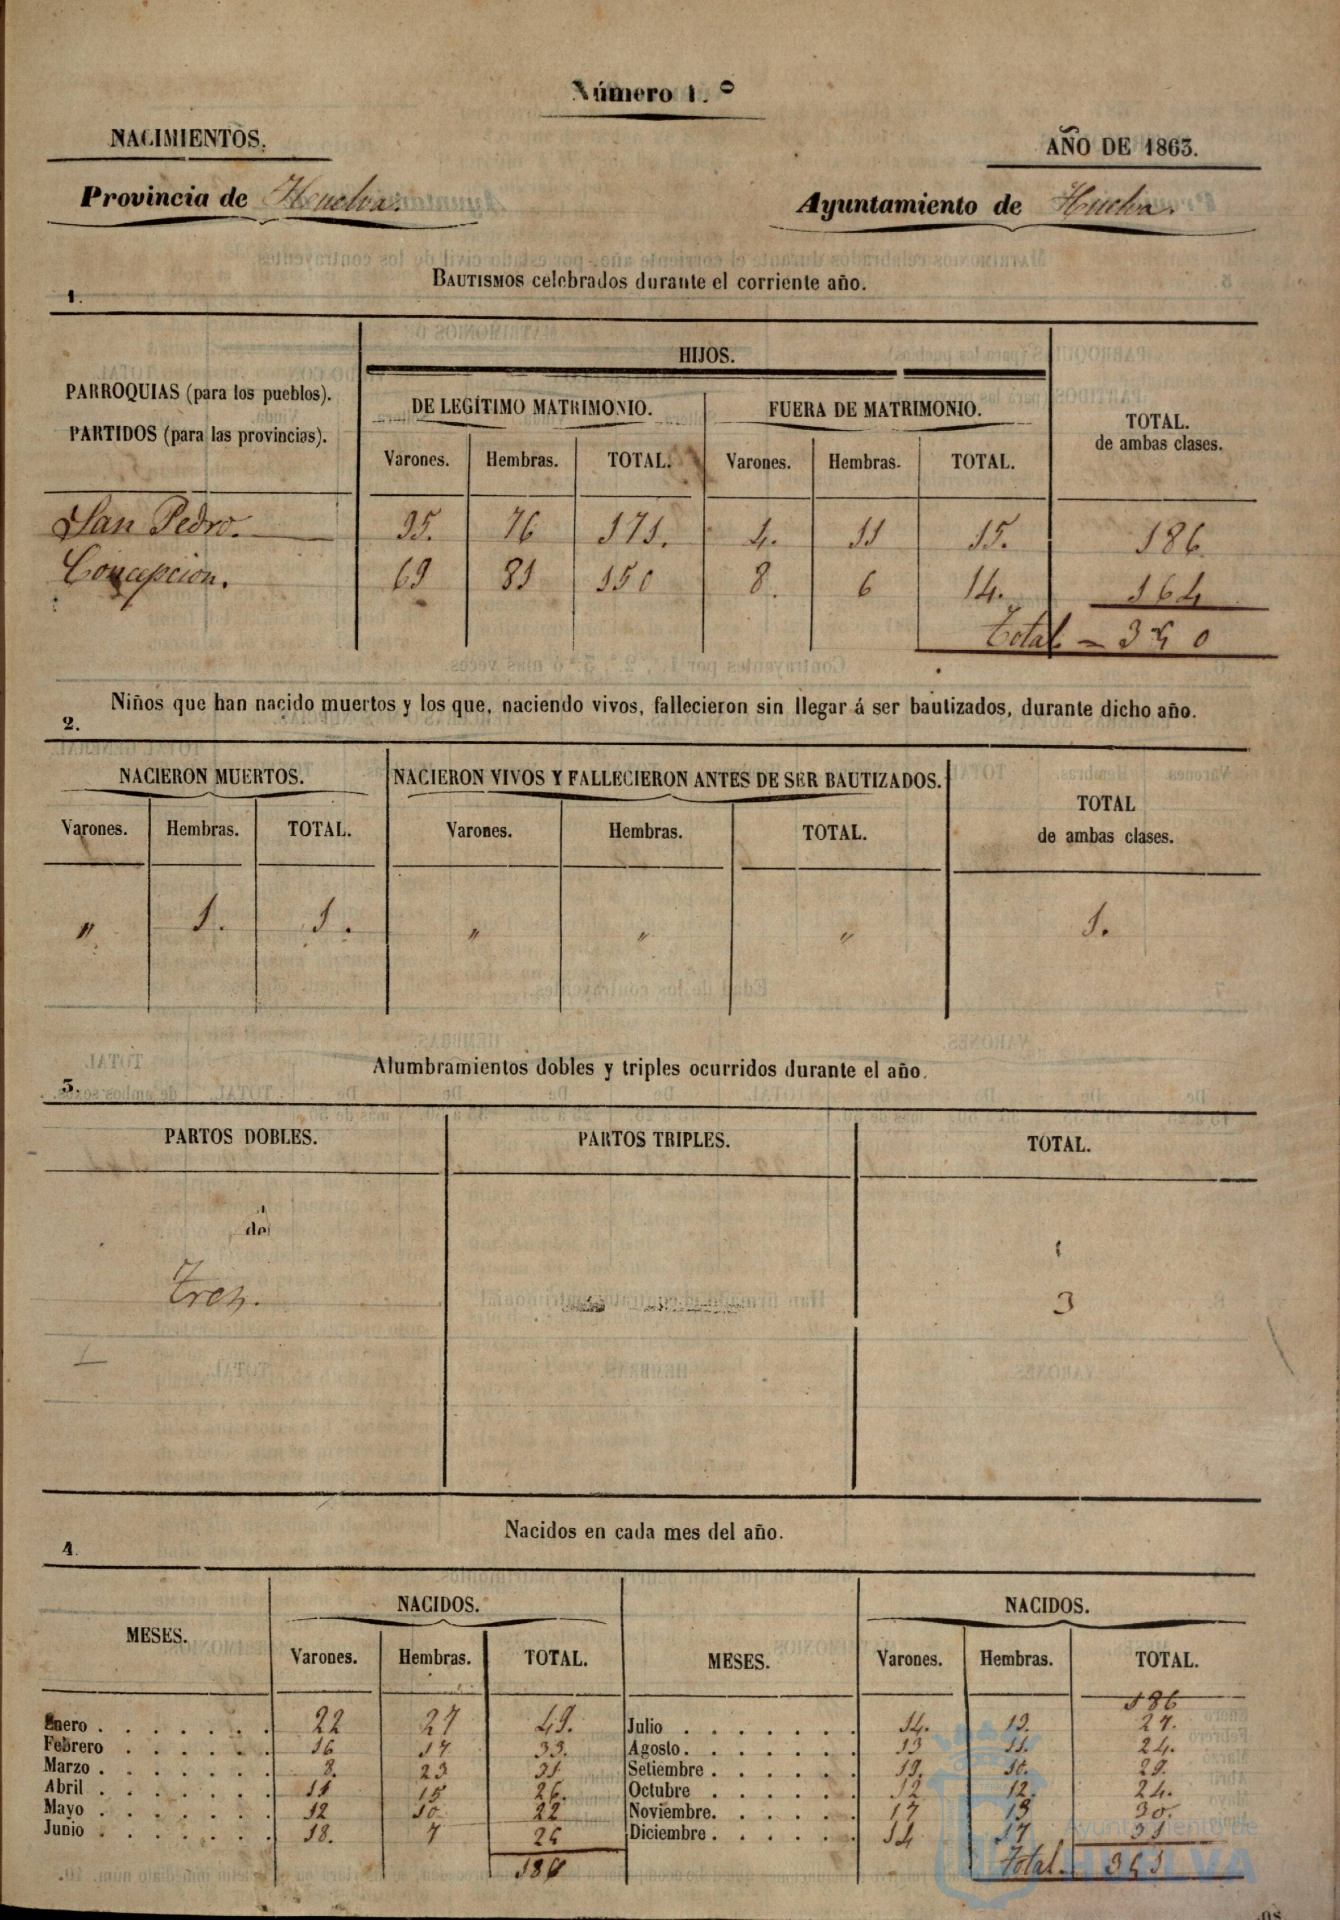 Número 1.º
NACIMIENTOS.
AÑO DE 1863.
Provincia de Huelva.
Ayuntamiento de Huelva.
BAUTISMOS celebrados durante el corriente año.
1.
PARROQUIAS (para los pueblos).
PARTIDOS (para las provincias).
HIJOS.
DE LEGÍTIMO MATRIMONIO.
FUERA DE MATRIMONIO.
TOTAL.
de ambas clases.
Varones. Hembras. TOTAL. Varones. Hembras. TOTAL.
San Pedro. 95. 76 171. 4. 11 15. 186
Concepcion. 69 81 150 8. 6 14. 164
Total = 350
Niños que han nacido muertos y los que, naciendo vivos, fallecieron sin llegar á ser bautizados, durante dicho año.
2.
NACIERON MUERTOS.
NACIERON VIVOS Y FALLECIERON ANTES DE SER BAUTIZADOS.
TOTAL
de ambas clases.
Varones. Hembras. TOTAL. Varones. Hembras. TOTAL.
" 1. 1. " " " 1.
Alumbramientos dobles y triples ocurridos durante el año.
3.
PARTOS DOBLES. PARTOS TRIPLES. TOTAL.
de
Tres. 3
Nacidos en cada mes del año.
4.
MESES. NACIDOS. MESES. NACIDOS.
Varones. Hembras. TOTAL. Varones. Hembras. TOTAL.
186
Enero 22 27 49. Julio 14. 13. 27.
Febrero 16 17 33. Agosto 13 11. 24.
Marzo 8. 23 31 Setiembre 19. 10. 29.
Abril 11 15 26. Octubre 12 12. 24.
Mayo 12 10 22 Noviembre 17 13 30.
Junio 18. 7 25 Diciembre 14 17 31
186 Total. 351
Ayuntamiento de
HUELVA